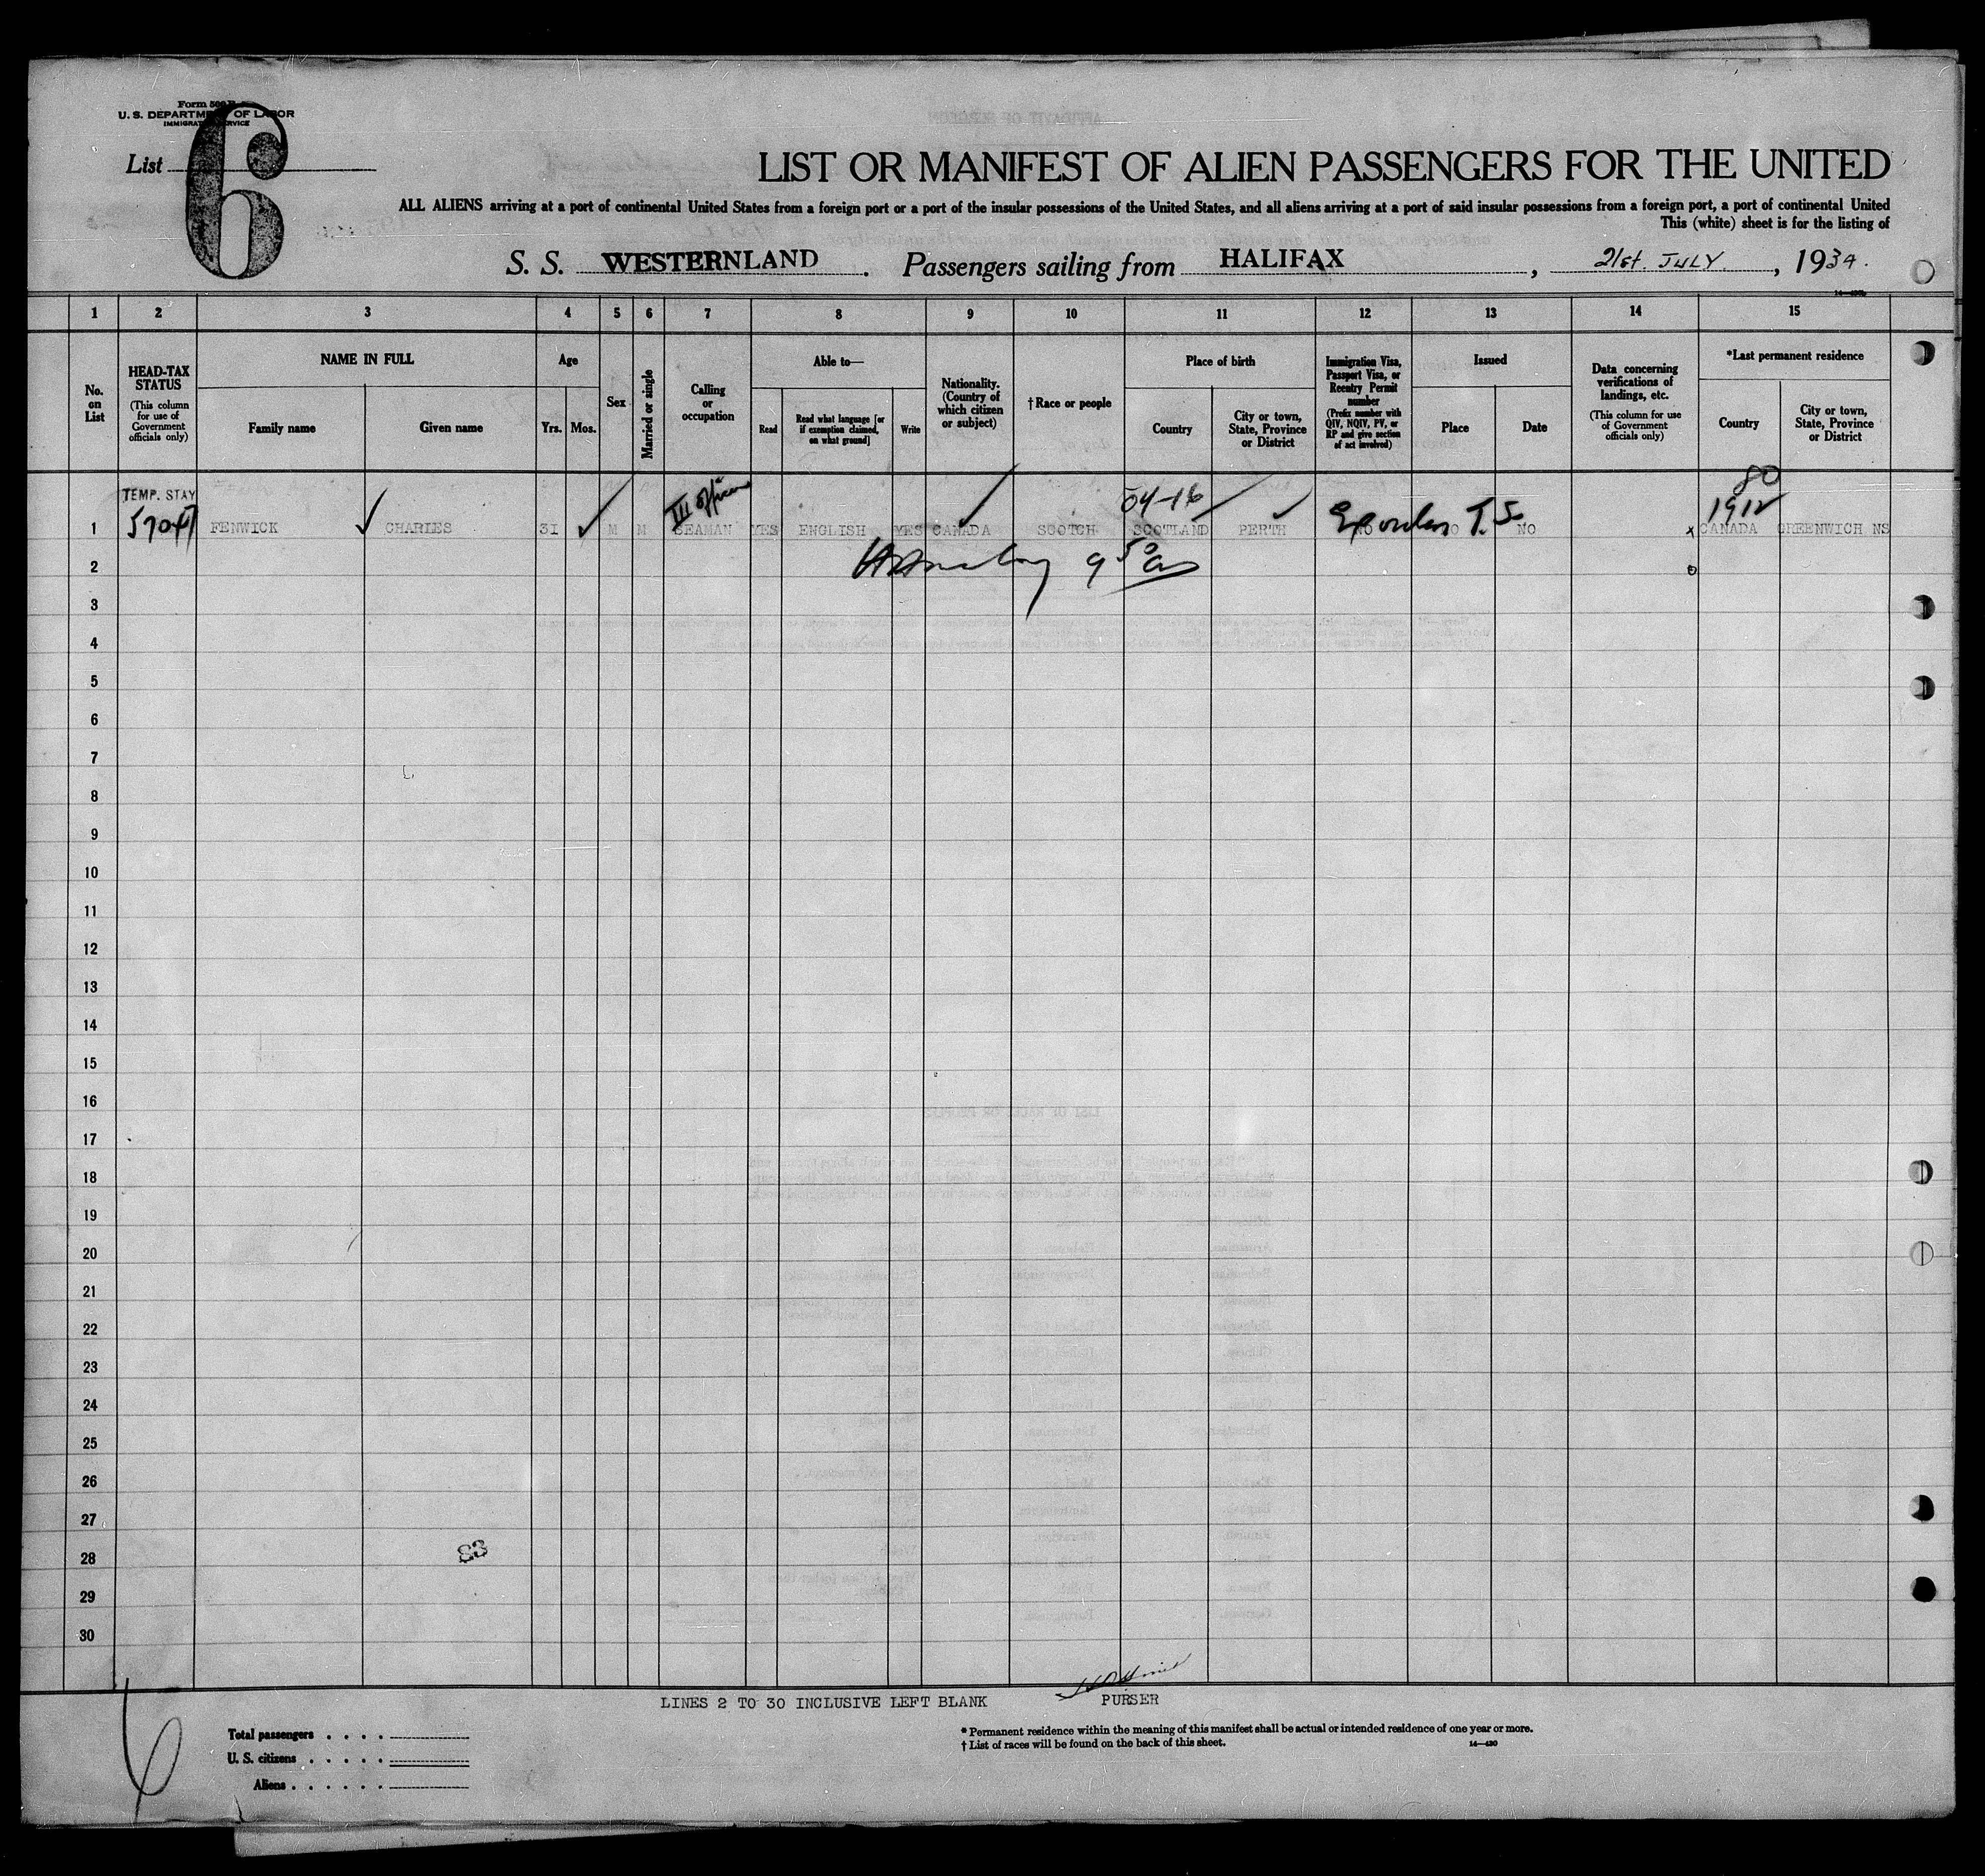 Form 500 B
U. S. DEPARTMENT OF LABOR
IMMIGRATION SERVICE
List 6
LIST OR MANIFEST OF ALIEN PASSENGERS FOR THE UNITED
ALL ALIENS arriving at a port of continental United States from a foreign port or a port of the insular possessions of the United States, and all aliens arriving at a port of said insular possessions from a foreign port, a port of continental United
This (white) sheet is for the listing of
S. S. WESTERNLAND . Passengers sailing from HALIFAX , 21st. JULY , 1934.
1 2 3 4 5 6 7 8 9 10 11 12 13 14 15
No. on List
HEAD-TAX STATUS
(This column for use of Government officials only)
NAME IN FULL
Family name
Given name
Age
Yrs.
Mos.
Sex
Married or single
Calling or occupation
Able to—
Read
Read what language [or if exemption claimed, on what ground]
Write
Nationality. (Country of which citizen or subject)
†Race or people
Place of birth
Country
City or town, State, Province or District
Immigration Visa, Passport Visa, or Reentry Permit number
(Prefix number with QIV, NQIV, PV, or RP and give section of act involved)
Issued
Place
Date
Data concerning verifications of landings, etc.
(This column for use of Government officials only)
*Last permanent residence
Country
City or town, State, Province or District
80
TEMP. STAY III officer 04-16 1912
1 FENWICK CHARLES 31 M M SEAMAN YES ENGLISH YES CANADA SCOTCH SCOTLAND PERTH NO NO NO T. S. x CANADA GREENWICH NS
2
3
4
5
6
7
8
9
10
11
12
13
14
15
16
17
18
19
20
21
22
23
24
25
26
27
28
83
29
30
LINES 2 TO 30 INCLUSIVE LEFT BLANK PURSER
Total passengers . . . .
U. S. citizens . . . . .
Aliens . . . . . .
* Permanent residence within the meaning of this manifest shall be actual or intended residence of one year or more.
† List of races will be found on the back of this sheet. 14—430